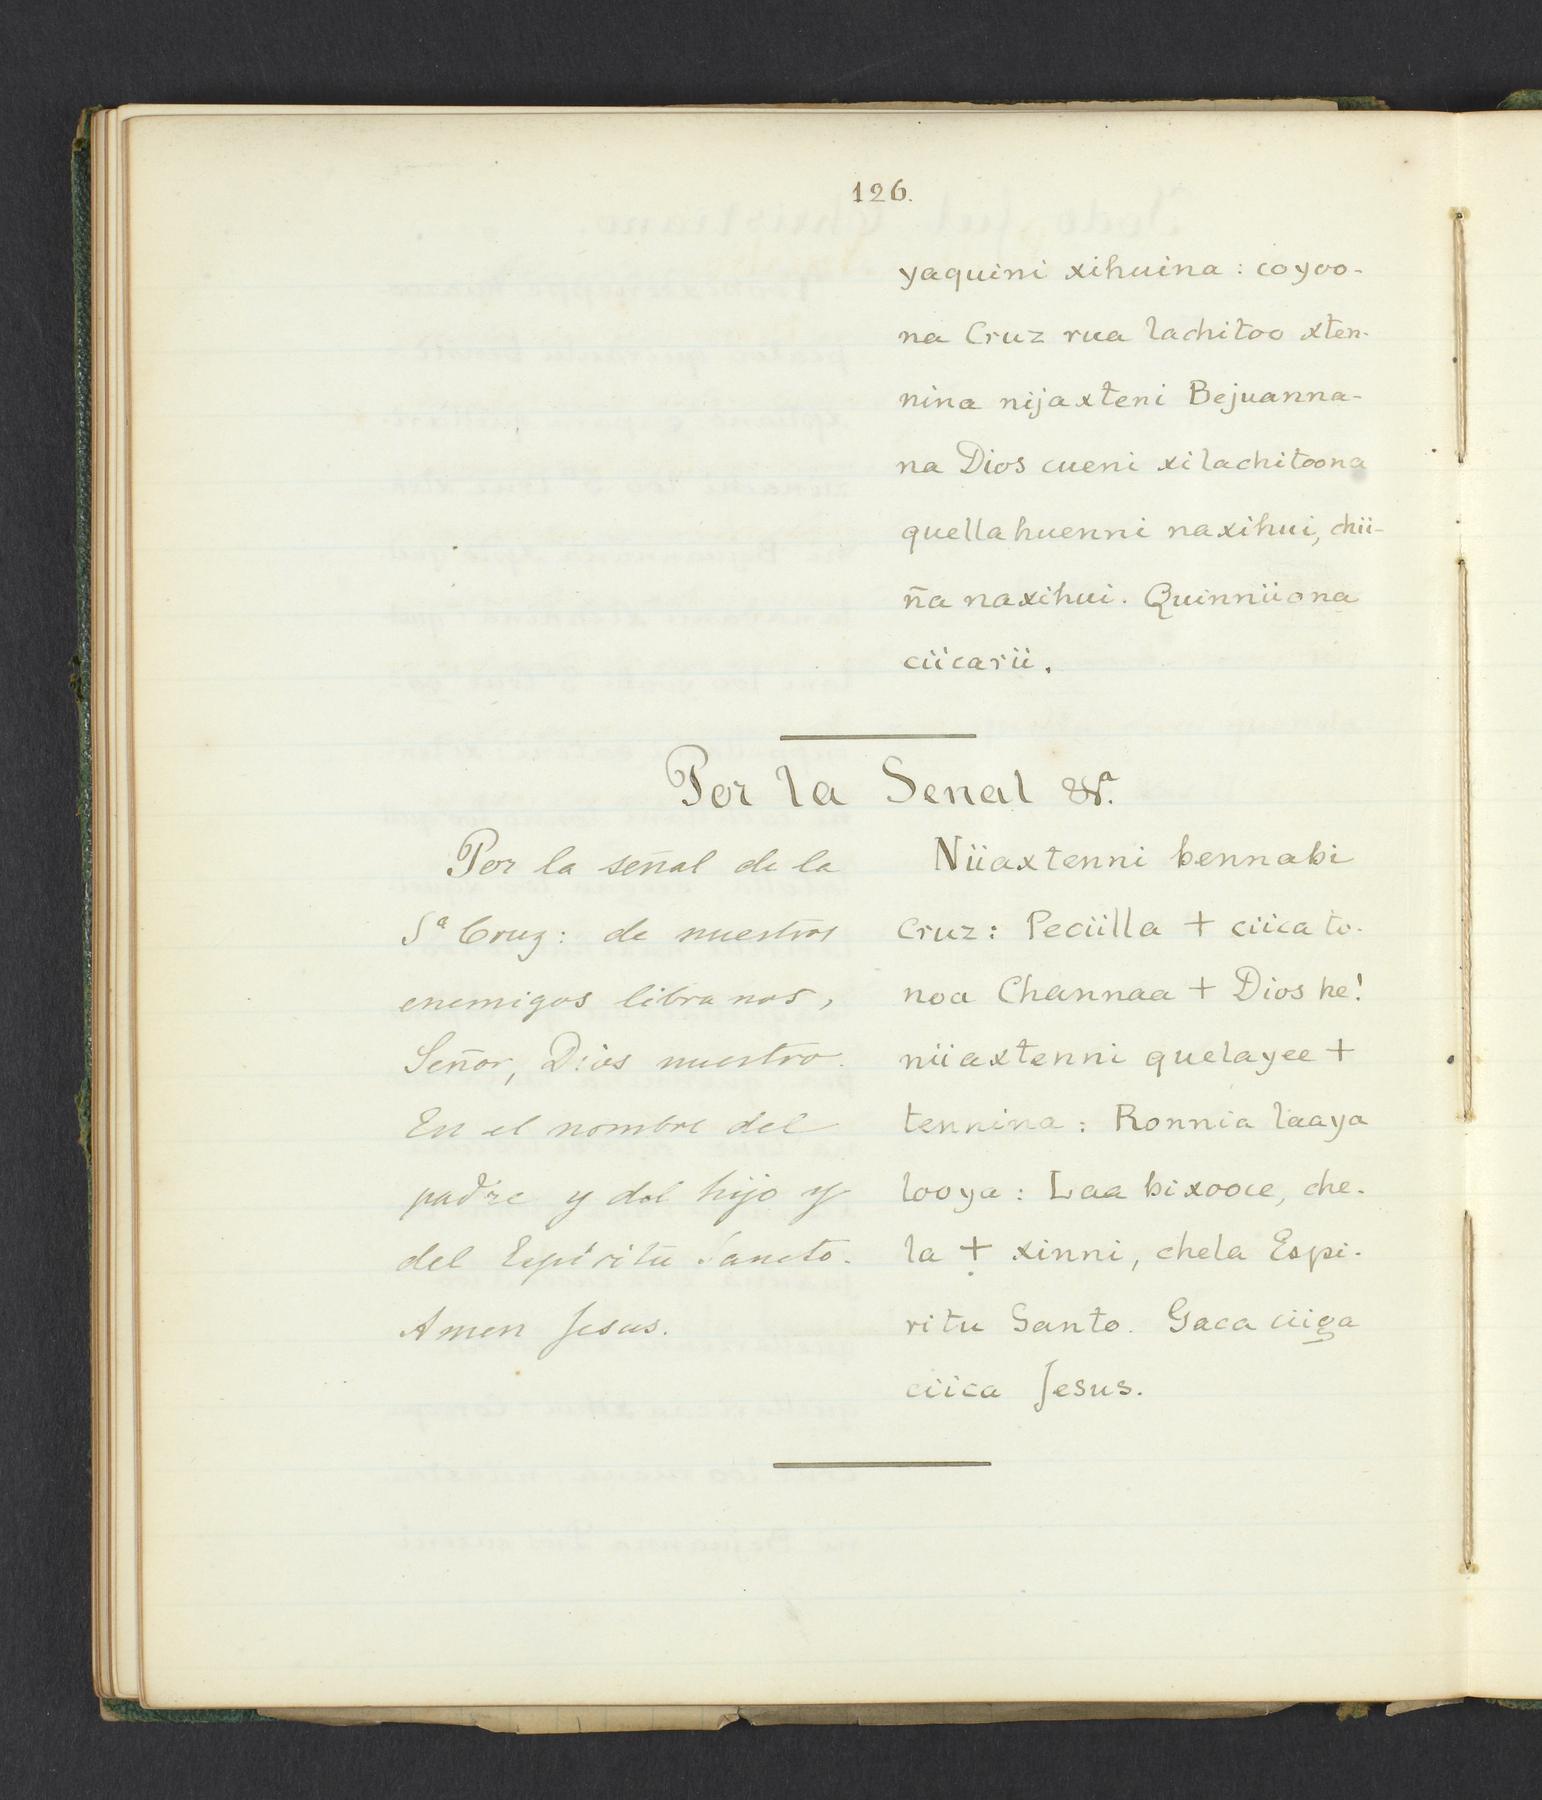 126.
yaquini xihuina : coyoo-
na Cruz rua lachitoo xten-
nina nijaxteni Bejuanna-
na Dios cueni xilachitoona
quellahuenni naxihui, chii-
ña naxihui. Quinniiona
ciicarii.
Por la Senal &ª.
Por la señal de la
Sª Cruz: de nuestros
enemigos libra nos,
Señor, Dios nuestro.
En el nombre del
padre y del hijo y
del Espíritu Sancto.
Amen Jesus.
Niiaxtenni bennabi
Cruz: Peciilla + ciica to-
noa Channaa + Dios he!
niiaxtenni quelayee +
tennina : Ronnia laaya
looya : Laa bixooce, che-
la + xinni, chela Espi-
ritu Santo. Gaca ciiga
ciica Jesus.